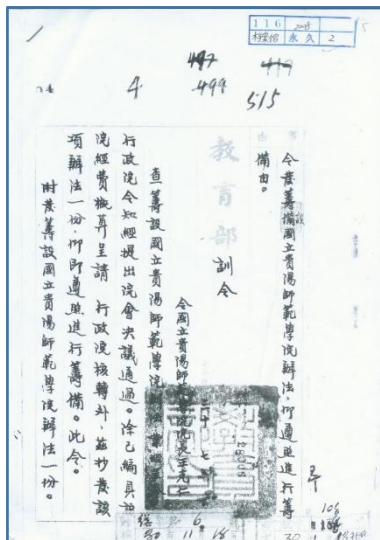 116
永久
2
497
499
515
令發籌備國立貴陽師範學院辦法,仰遵照進行籌
備由。
教育部
訓令
令國立貴陽師範學院院長王克仁
查籌設國立貴陽師範學院
行政院令知經提出院會決議通過。除已編具該
院經費概算呈請 行政院核轉外,茲抄發該
項辦法一份,仰即遵照進行籌備。此令。
附發籌設國立貴陽師範學院辦法一份。